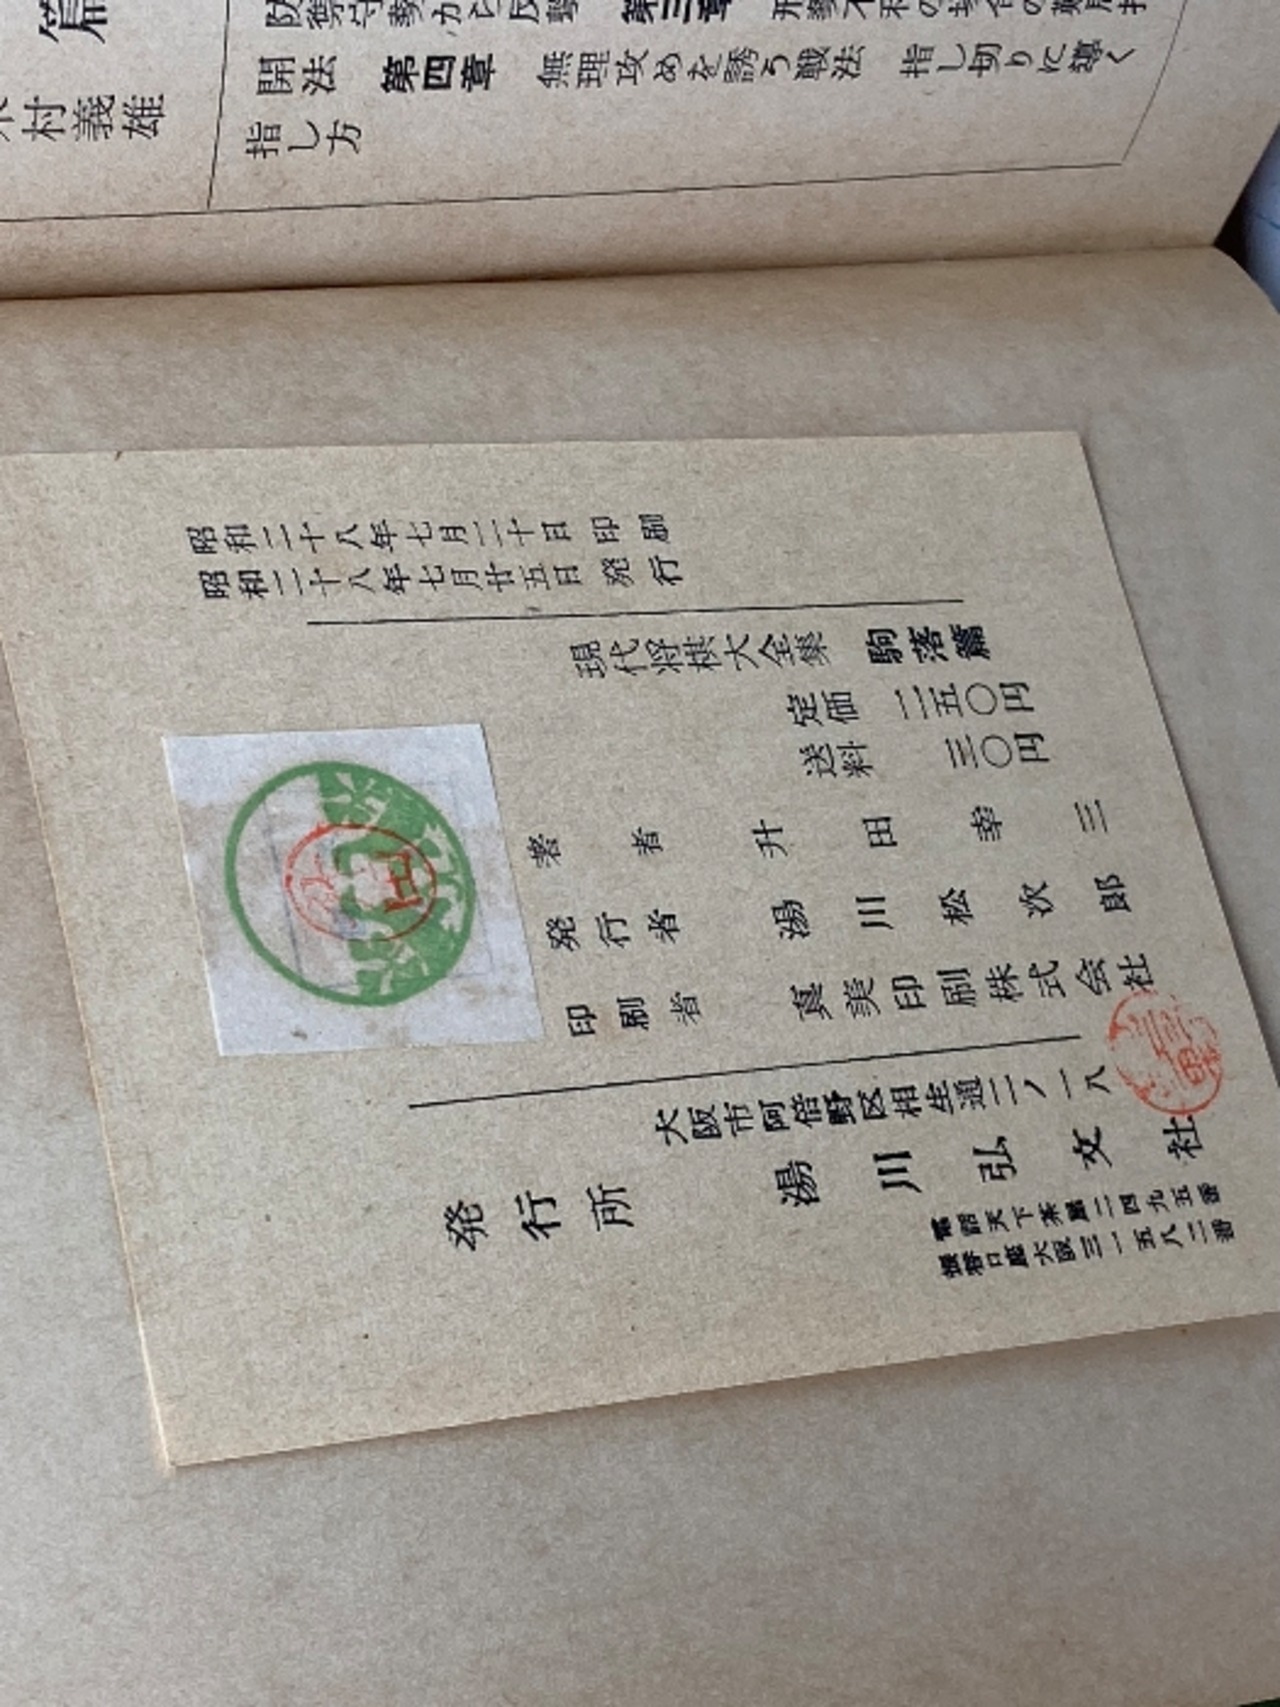 篇
村義雄
第三章
開法　第四章　無理攻めを誘う戦法　指し切りに導く
指し方
昭和二十八年七月二十日印刷
昭和二十八年七月廿五日発行
現代将棋大全集　駒落篇
定価　二五〇円
送料　三〇円
著者　升田幸三
発行者　湯川松次郎
印刷者　真美印刷株式会社
大阪市阿倍野区相生通二ノ一八
発行所　湯川弘文社
電話天下茶屋二四九五番
振替口座大阪三一五八二番